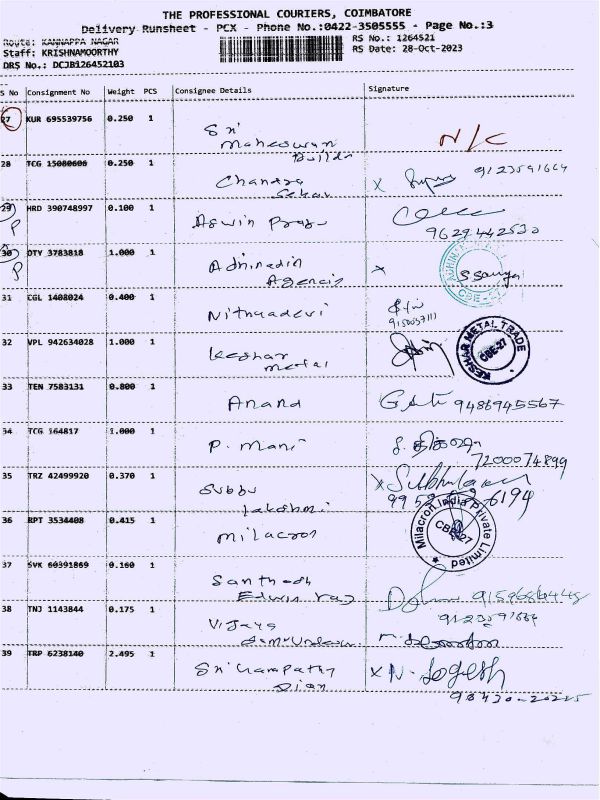 THE PROFESSIONAL COURIERS, COIMBATORE
Delivery Runsheet - PCX - Phone No.:0422-3505555 - Page No.:3
Route: KANNAPPA NAGAR
RS No.: 1264521
Staff: KRISHNAMOORTHY
RS Date: 28-Oct-2023
DRS No.: DCJB126452103
S No Consignment No Weight PCS Consignee Details Signature
27 KUR 695539756 0.250 1 Sri N/C
Maheswari
Builds
28 TCG 15080606 0.250 1 Chandra x 9123591664
Sekar
29 HRD 390748997 0.100 1 Aswin Prasu
P 9629442530
30 DTY 3783818 1.000 1 Adhinadin x
P Agencis CBE-27
31 CGL 1408024 0.400 1 Nithyadevi
9150037111
32 VPL 942634028 1.000 1 Keshar KESHAR METAL TRADE
metal CBE-27
33 TEN 7583131 0.800 1 Anand 9486945567
34 TCG 164817 1.000 1 P. Mani
7200074899
35 TRZ 42499920 0.370 1 Subbu x
lakshmi 6194
36 RPT 3534408 0.415 1 Milacron Milacron India Private Limited
CBE-27
37 SVK 60391869 0.160 1 Santhosh
Edwin raj
38 TNJ 1143844 0.175 1 Vijaya 9123591664
39 TRP 6238140 2.495 1 Sri x N. Jogesh